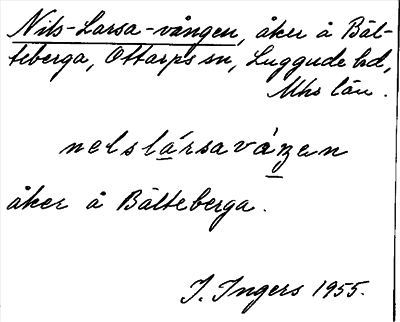 Nils-Larsa-vången, åker å Bäl-
teberga, Ottarps sn, Luggude hd,
Mhs län.
nelslársaváŋen
åker å Bälteberga.
I. Ingers 1955.